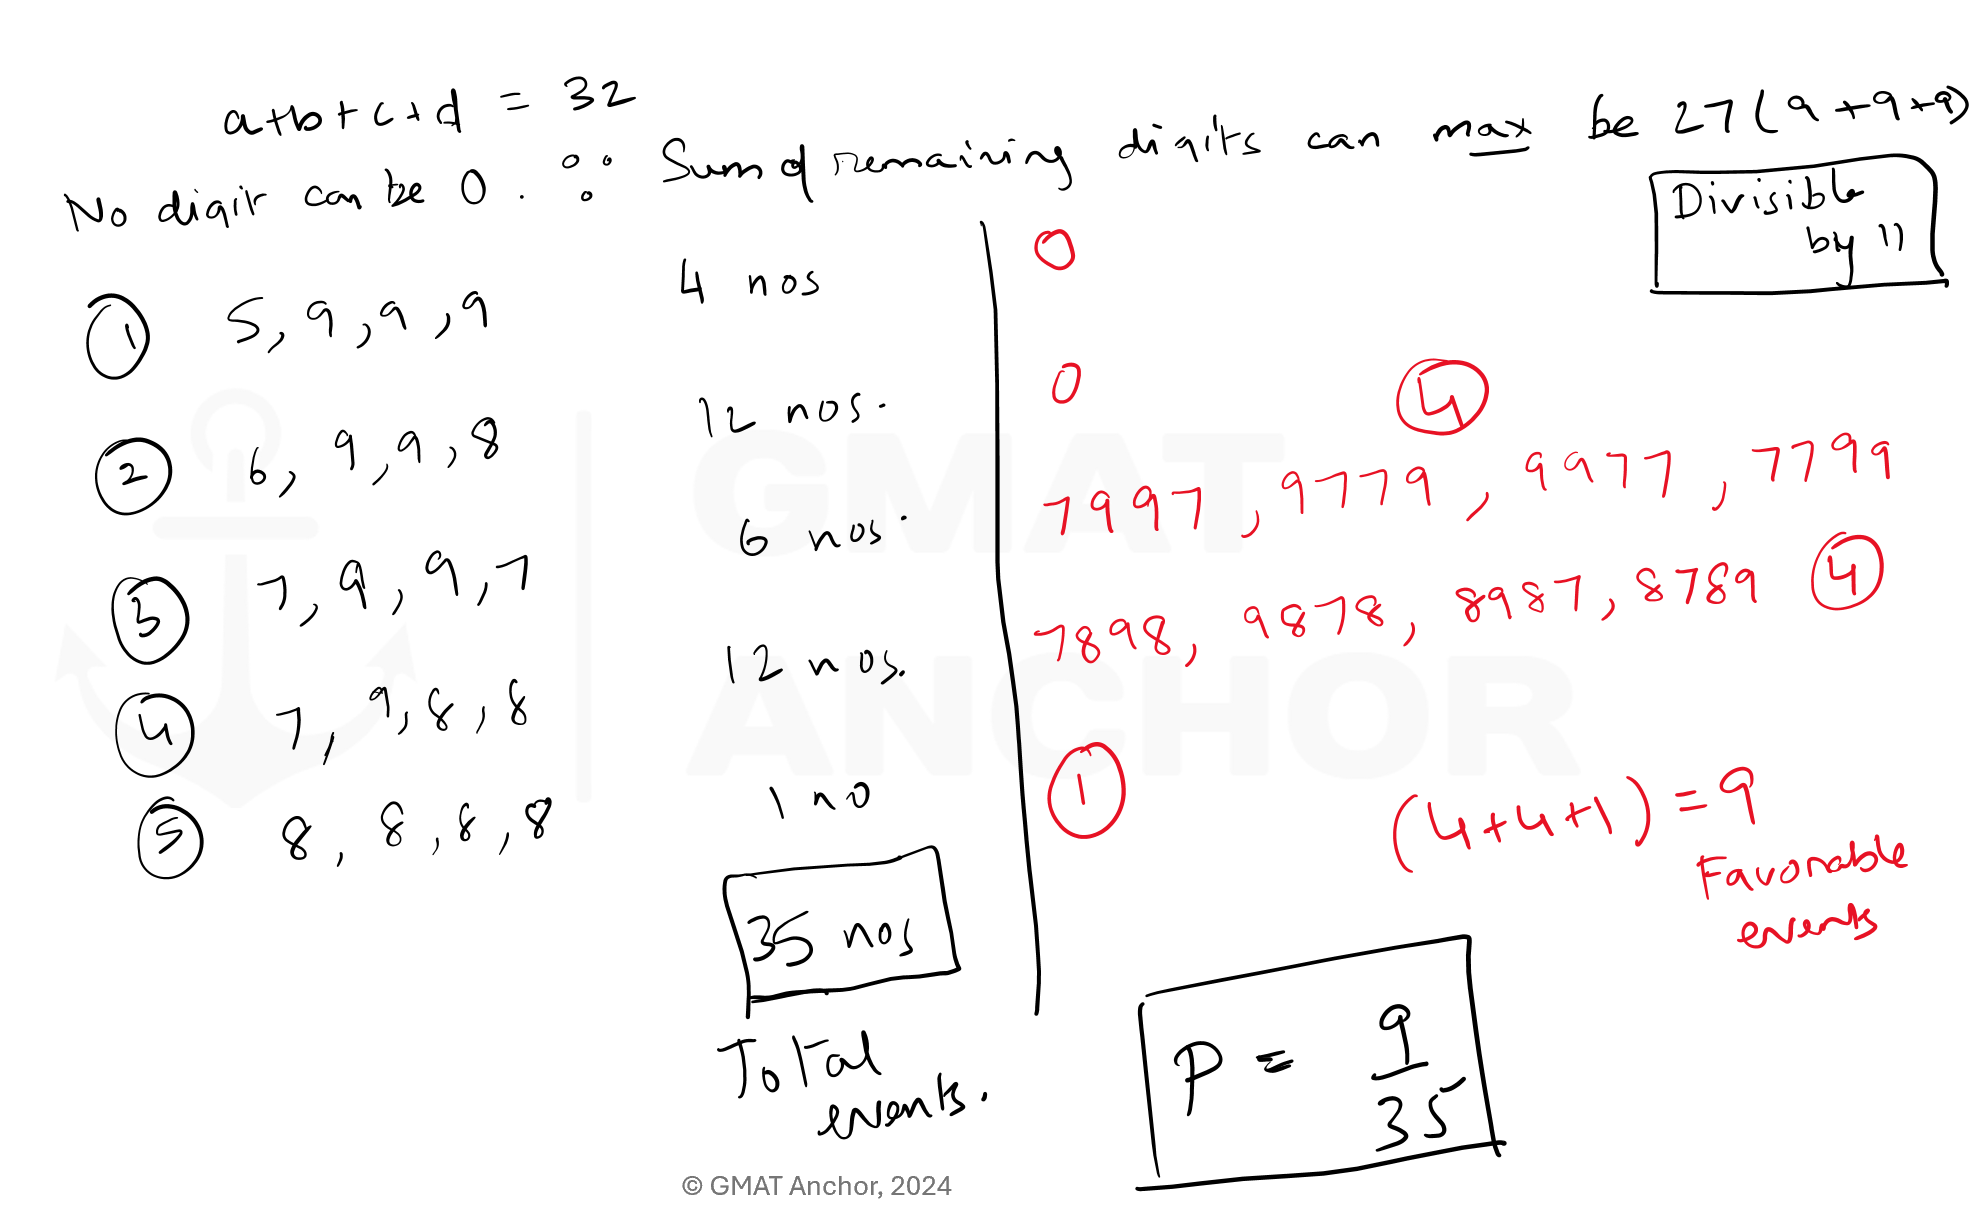 a+b+c+d = 32
No digit can be 0. ∵ Sum of remaining digits can max be 27(9+9+9)
Divisible
by 11
① 5, 9, 9, 9 4 nos 0
② 6, 9, 9, 8 12 nos. 0
④
③ 7, 9, 9, 7 6 nos. 7997, 9779, 9977, 7799
④ 7, 9, 8, 8 12 nos. 7898, 9878, 8987, 8789 ④
⑤ 8, 8, 8, 8 1 no ① (4+4+1) = 9
Favorable
events
35 nos
Total
events.
P = 9/35
GMAT
ANCHOR
© GMAT Anchor, 2024